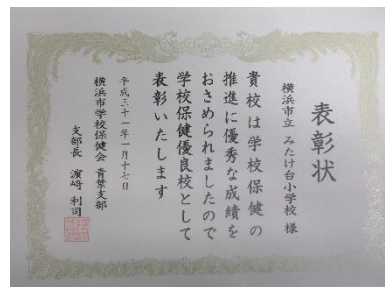 表彰状
横浜市立 みたけ台小学校 様
貴校は学校保健の
推進に優秀な成績を
おさめられましたので
学校保健優良校として
表彰いたします
平成三十一年一月十七日
横浜市学校保健会 青葉支部
支部長 濵﨑 利司